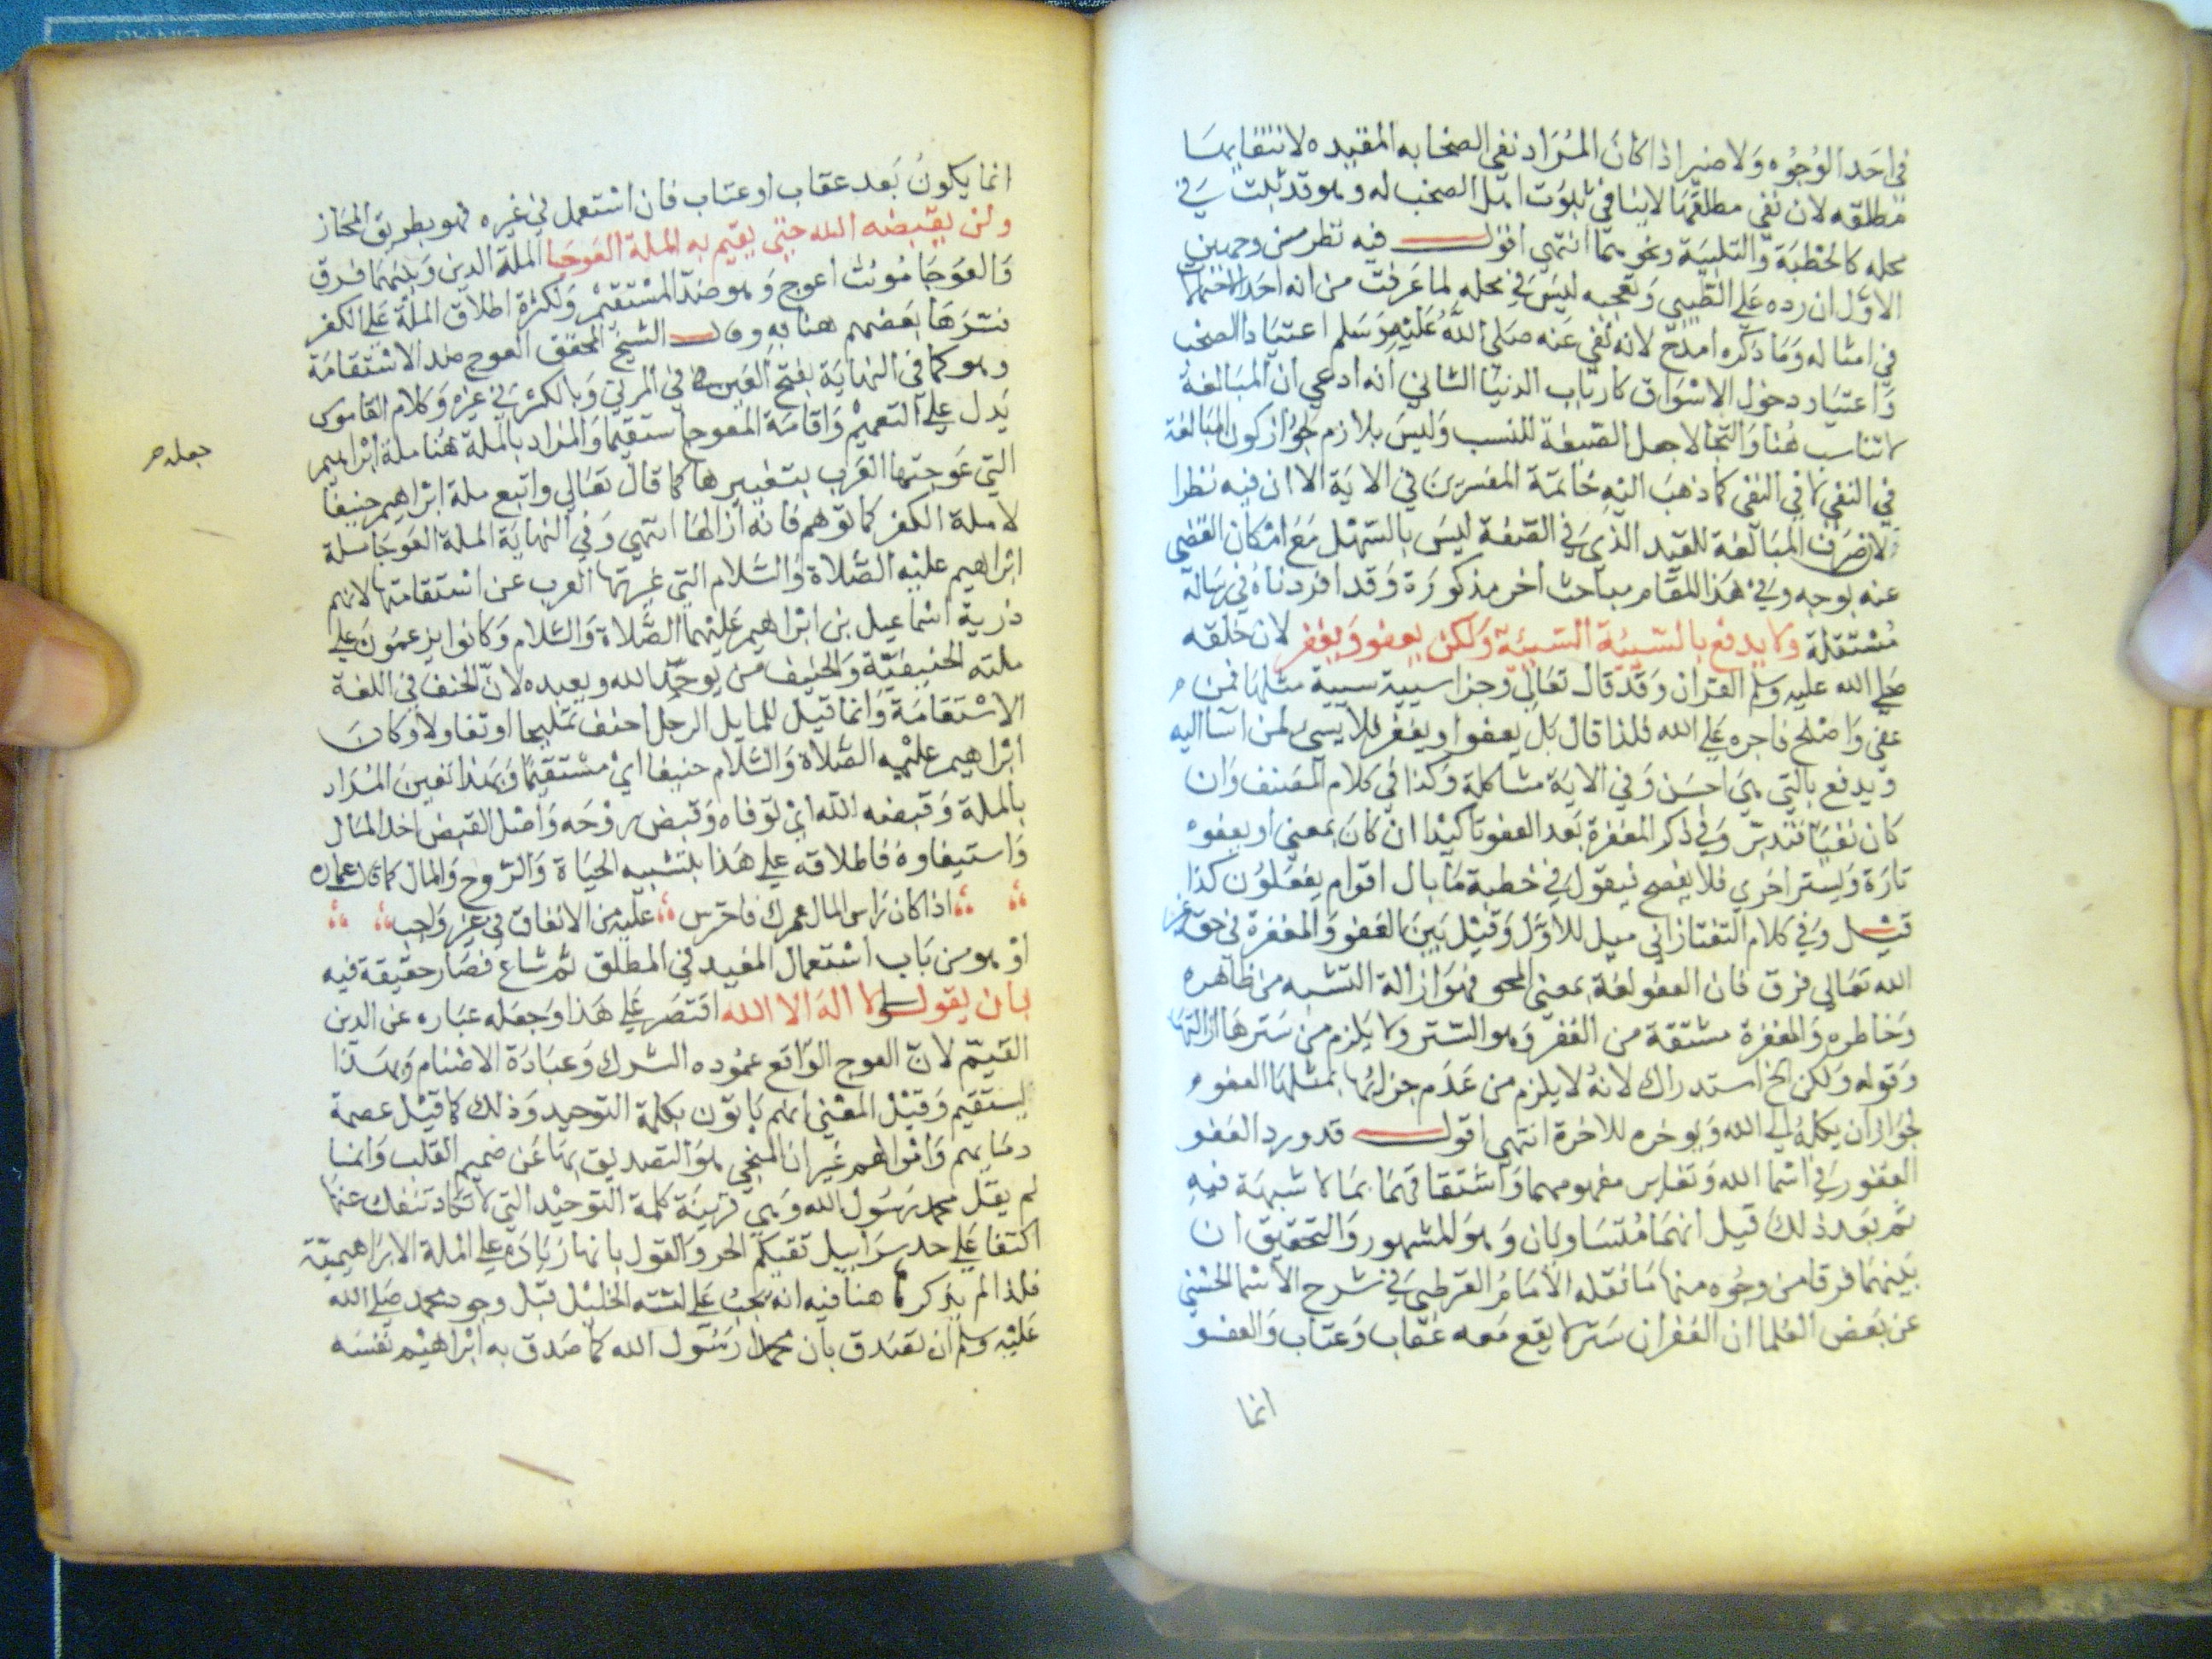 في احد الوجوه ولا ضير اذا كان المراد نفي الصخابه المقيده لانتفا بها
مطلقه لان نفي مطلقها لا ينافي ثبوت اصل الصخب له وهو قد ثبت في
محله كالخطبة والتلبية ونحوهما انتهي اقول فيه نظر من وجهين
الاول ان رده علي الطيبي وتعجبه ليس في محله لما عرفت من انه احد
في امثاله وما ذكره امدح لانه نفي عنه صلي الله عليه وسلم اعتياد الصخب
واعتياد دخول الاسواق كارباب الدنيا الثاني انه ادعي ان المبالغة
لا تناسب هنا والتجا لا جعل الصيغة للنسب وليس بلازم لجواز كون المبالغة
في النفي لا في النفي كما ذهب اليه خاتمة المفسرين في الاية الا ان فيه نظرا
لان صرف المبالغة للقيد الذي في الصفة ليس بالسهل مع امكان القضي
عنه بوجه وفي هذا المقام مباحث اخر مذكورة وقد افردناه في رسالة
مستقلة ولا يدفع بالسيئة السيئة ولكن يعفو ويغفر لان خلقه
صلي الله عليه وسلم القران وقد قال تعالي وجزا سيية سيية مثلها فمن
عفي واصلح فاجره علي الله فلذا قال بل يعفوا ويغفر فلا يسي لمن اسا اليه
ويدفع بالتي هي احسن وفي الاية مشاكلة وكذا في كلام المصنف وان
كان نفيا فتدبر وفي ذكر المغفرة بعد العفو تاكيدا ان كان بمعني او يعفوه
تارة ويستر اخري فلا يفصح فيقول في خطبة ما بال اقوام يفعلون كذا
قيل وفي كلام التفتازاني ميل للاول وقيل بين العفو والمغفرة في حق غير
الله تعالي فرق فان العفو لغة بمعني المحو فهو ازالة التشبه من ظاهره
وخاطره والمغفرة مشتقة من الغفر وهو الستر ولا يلزم من سترها ازالتها
وقوله ولكن الخ استدراك لانه لا يلزم من عدم جزائها بمثلها العفو
لجواز ان يكله الي الله ويوخره للاخرة انتهي اقول قد ورد العفو
الغفور في اسما الله وتغاير مفهومهما واشتقاقهما بما لا شبهة فيه
ثم بعد ذلك قيل انهما متساويان وهو المشهور والتحقيق ان
بينهما فرقا من وجوه منها ما نقله الامام القرطبي في شرح الاسما الحسني
عن بعض العلما ان الغفران ستر لا يقع معه عقاب وعتاب والعفو
انما
انما يكون بعد عقاب او عتاب فان استعمل في غيره فهو بطريق المجاز
ولن يقبضه الله حتي يقيم به الملة العوجا الملة الدين وبينهما فرق
والعوجا مونث اعوج وهو ضد المستقيم ولكثرة اطلاق الملة علي الكفر
فسرها بعضهم هنا به وقال الشيخ المحقق العوج ضد الاستقامة
وهو كما في النهاية بفتح العين في المرئي وبالكسر في غيره وكلام القاموس
يدل علي التعميم واقامة المعوج مستقيما والمراد بالملة هنا ملة ابراهيم
التي عوجتها العرب بتغييرها كما قال تعالي واتبع ملة ابراهيم حنيفا
جعله
لا ملة الكفر كما توهم فانه ازالها انتهي وفي النهاية الملة العوجا ملة
ابراهيم عليه الصلاة والسلام التي غيرتها العرب عن استقامتها لانهم
ذرية اسماعيل بن ابراهيم عليهما الصلاة والسلام وكانوا يزعمون علي
ملته الحنيفية والحنيف من يوحد الله ويعبده لان الحنف في اللغة
الاستقامة وانما قيل للمايل الرجل احنف تمليحا او تفاولا وكان
ابراهيم عليه الصلاة والسلام حنيفا اي مستقيما وبهذا تعين المراد
بالملة وقبضه الله اي توفاه وقبض روحه واصل القبض اخذ المال
واستيفاوه فاطلاقه علي هذا بتشبيه الحياة والروح والمال كما قال عماره
اذا كان راس المال عمرك فاحترس عليه من الانفاق في غير واجب
او هو من باب استعمال المقيد في المطلق ثم شاع فصار حقيقة فيه
بان يقولوا لا اله الا الله اقتصر علي هذا وجعله عباره عن الدين
القيم لان العوج الواقع عموده الشرك وعبادة الاصنام وبهذا
يستقيم وقيل المعني انهم ياتون بكلمة التوحيد وذلك كما قيل عصمة
دمايهم واموالهم غير ان المنجي هو التصديق بها عن صميم القلب وانما
لم يقل محمد رسول الله وهي قرينة كلمة التوحيد التي لا تكاد تنفك عنها
اكتفا علي حد سرابيل تقيكم الحر والقول بانها زيادة علي الملة الابراهيمية
فلذا لم يذكر لا هنا فيه انه يجب علي امة الخليل قبل وجود محمد صلي الله
عليه وسلم ان تصدق بان محمدا رسول الله كما صدق به ابراهيم نفسه